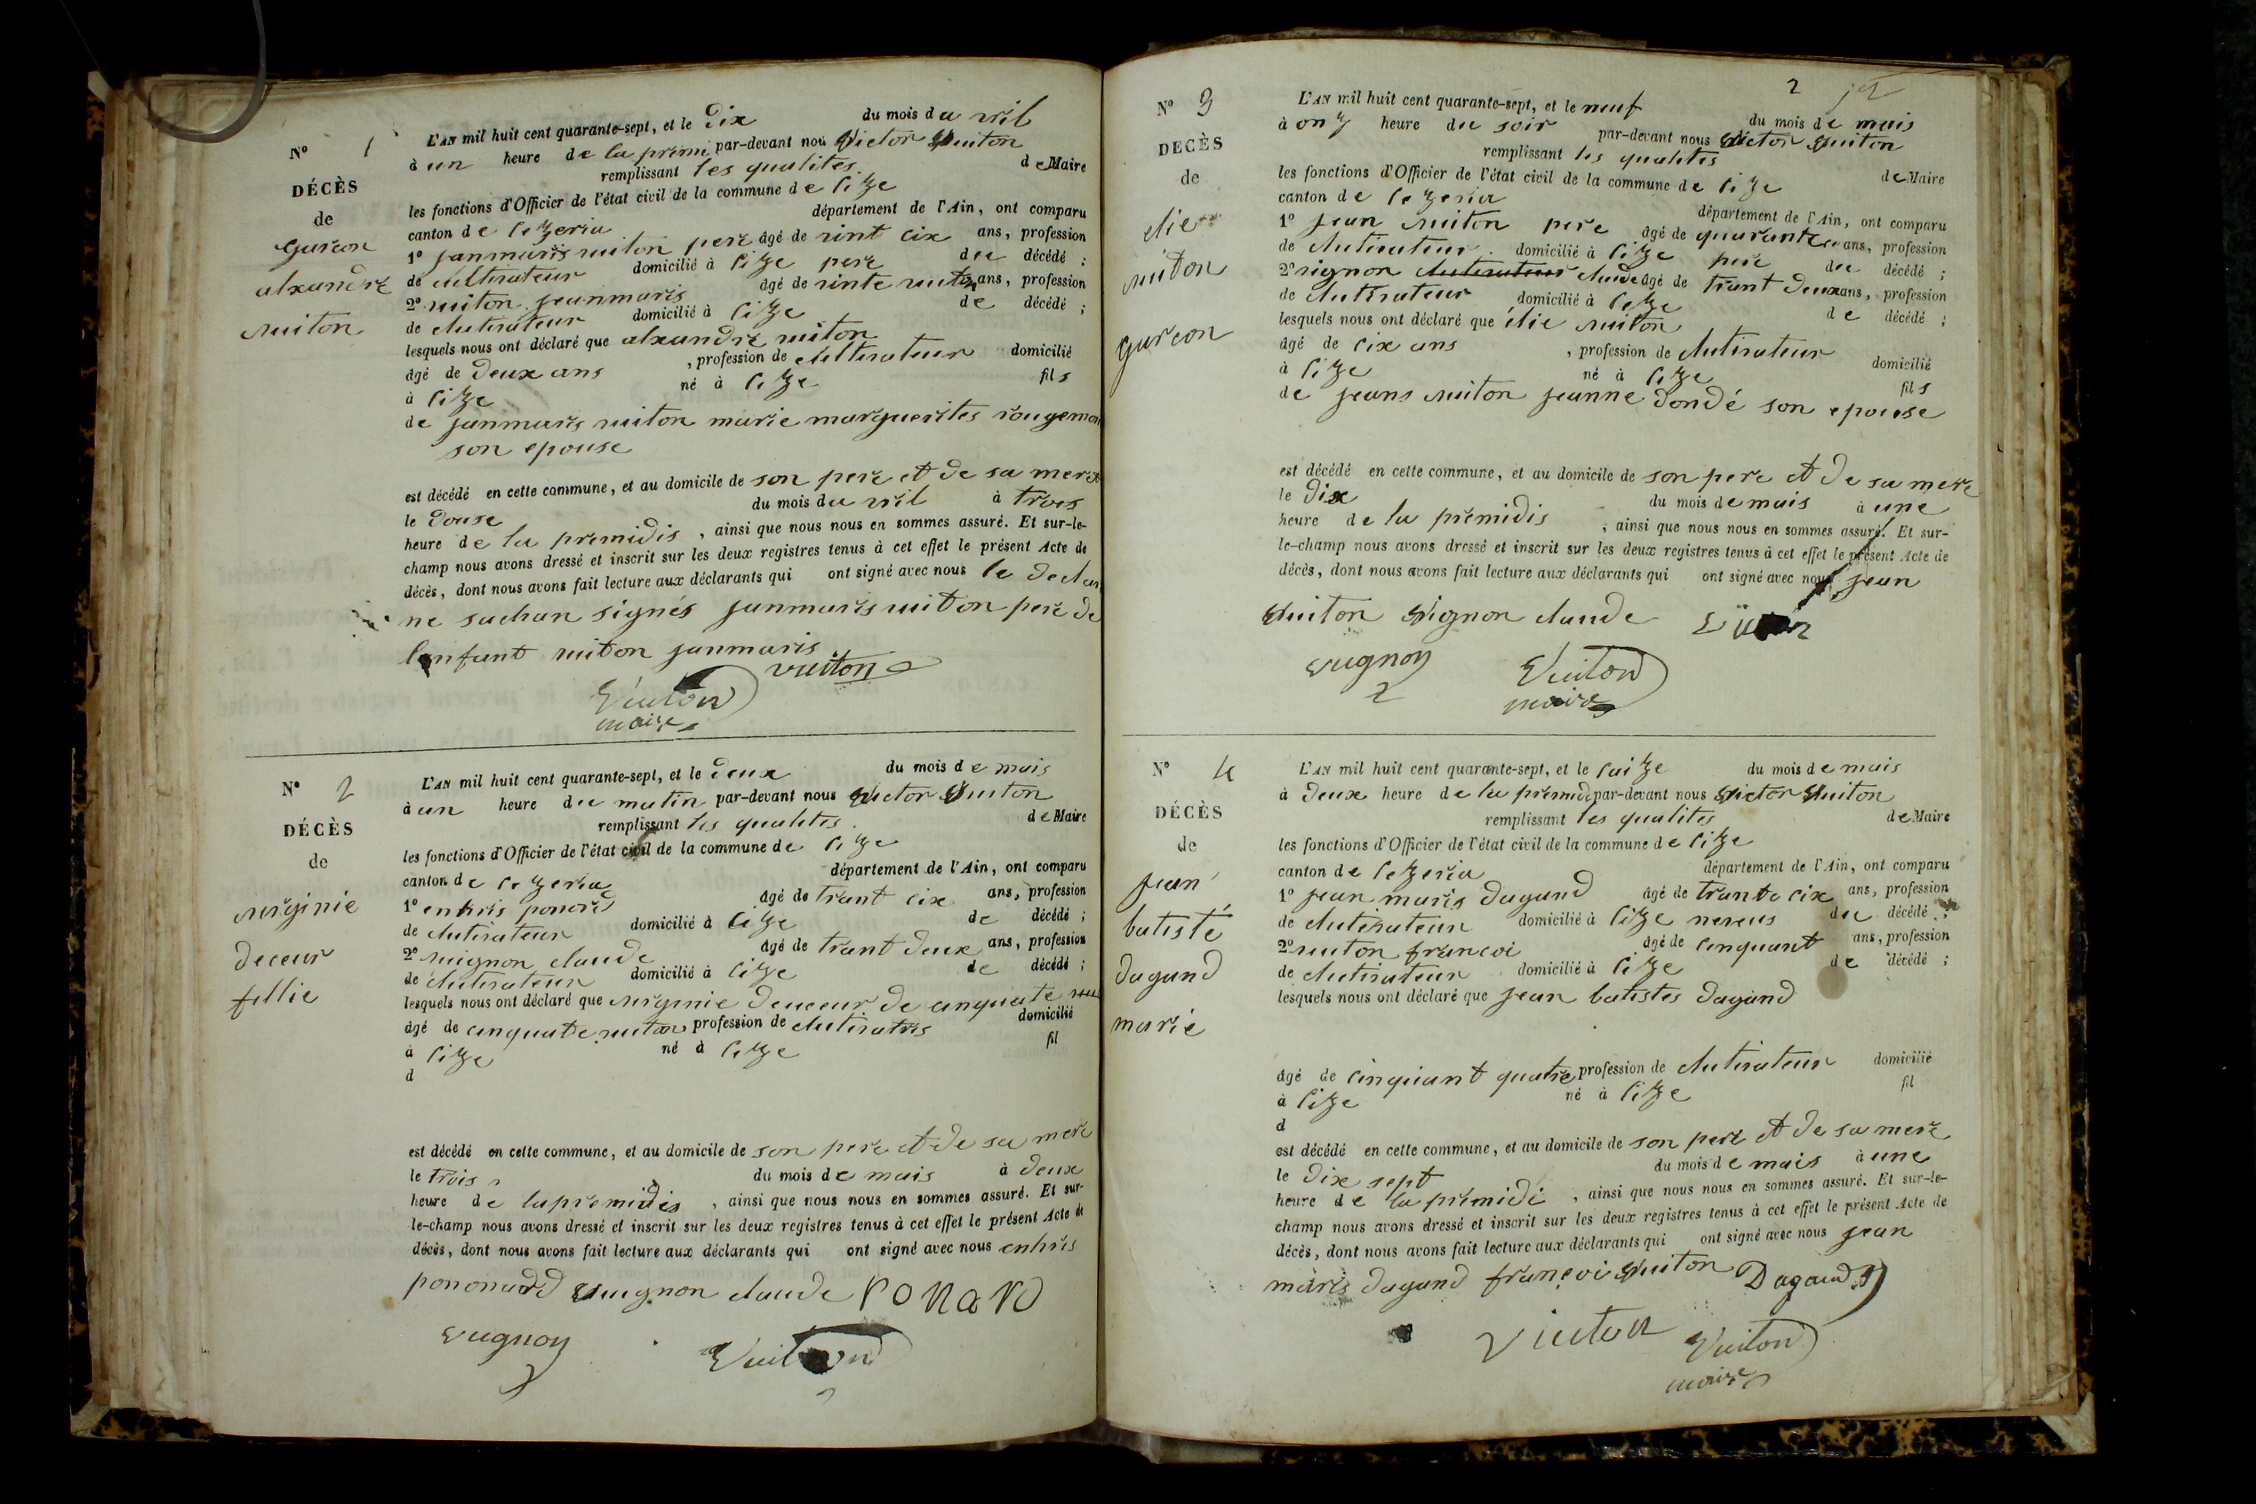 N° 1
DÉCÈS
de
garcon
alxandre
vuiton
L'AN mil huit cent quarante-sept, et le dix du mois d a vril
à un heure de la premi par-devant nous victor vuiton
remplissant les qualités de Maire
les fonctions d'Officier de l'état civil de la commune de cize
canton de cezeria département de l'Ain, ont comparu
1° janmaris vuiton pere âgé de vint cix ans, profession
de cultirateur domicilié à cize pere du décédé ;
2° vuiton jeanmaris âgé de vinte ans, profession
de clutirateur domicilié à cize de décédé ;
lesquels nous ont déclaré que alxandre vuiton
âgé de deux ans , profession de cultirateur domicilié
à cize né à cize fils
de janmaris vuiton marie marguerites rougemon
son epouse
est décédé en cette commune, et au domicile de son pere et de sa mere
le douse du mois d a vril à trois
heure de la premidis , ainsi que nous nous en sommes assuré. Et sur-le-
champ nous avons dressé et inscrit sur les deux registres tenus à cet effet le présent Acte de
décès, dont nous avons fait lecture aux déclarants qui ont signé avec nous le declar
ne sachan signés janmaris vuiton pere de
lenfant vuiton janmaris
vuiton
Vuiton
maire
N° 2
DÉCÈS
de
virginie
deceur
fillie
L'AN mil huit cent quarante-sept, et le deux du mois de mais
à un heure du matin par-devant nous victor vuiton
remplissant les qualités de Maire
les fonctions d'Officier de l'état civil de la commune de cize
canton de cezeria département de l'Ain, ont comparu
1° enhris ponard âgé de trant cix ans, profession
de clutirateur domicilié à cize de décédé ;
2° vuignon claude âgé de trant deux ans, profession
de clutirateur domicilié à cize de décédé ;
lesquels nous ont déclaré que virginie deuceur de cinquate
âgé de cinquate profession de clutiratris domicilié
à cize né à cize fil
d
est décédé en cette commune, et au domicile de son pere et de sa mere
le trois du mois de mais à deux
heure de lapremidis , ainsi que nous nous en sommes assuré. Et sur-
le-champ nous avons dressé et inscrit sur les deux registres tenus à cet effet le présent Acte de
décès, dont nous avons fait lecture aux déclarants qui ont signé avec nous enhris
pononard vuignon claude PONARD
vugnon
Vuiton
2
N° 3
DÉCÈS
de
elie
vuiton
garcon
L'AN mil huit cent quarante-sept, et le neuf du mois de mais
à onz heure du soir par-devant nous victor vuiton
remplissant les qualités de Maire
les fonctions d'Officier de l'état civil de la commune de cize
canton de cezeria département de l'Ain, ont comparu
1° jean vuiton pere âgé de quarante ans, profession
de clutirateur domicilié à cize pere du décédé ;
2° vignon clutirateur claude âgé de trant deux ans, profession
de clutirateur domicilié à cize de décédé ;
lesquels nous ont déclaré que élie vuiton
âgé de cix ans , profession de clutirateur domicilié
à cize né à cize fils
de jeans vuiton jeanne dondé son epouse
est décédé en cette commune, et au domicile de son pere et de sa mere
le dix du mois de mais à une
heure de la premidis , ainsi que nous nous en sommes assuré. Et sur-
le-champ nous avons dressé et inscrit sur les deux registres tenus à cet effet le présent Acte de
décès, dont nous avons fait lecture aux déclarants qui ont signé avec nous jean
vuiton vignon claude
vugnon
Vuiton
maire
N° 4
DÉCÈS
de
jean
batisté
dagand
marie
L'AN mil huit cent quarante-sept, et le saize du mois de mais
à deux heure de la premidi par-devant nous victor vuiton
remplissant les qualités de Maire
les fonctions d'Officier de l'état civil de la commune de cize
canton de cezeria département de l'Ain, ont comparu
1° jean maris dagand âgé de trante cix ans, profession
de clutirateur domicilié à cize neveus du décédé ;
2° vuiton francoi âgé de cinquant ans, profession
de clutirateur domicilié à cize de décédé ;
lesquels nous ont déclaré que jean batistes dagand
âgé de cinquant quatre profession de clutirateur domicilié
à cize né à cize fil
d
est décédé en cette commune, et au domicile de son pere et de sa mere
le dix sept du mois de mais à une
heure de la premidi , ainsi que nous nous en sommes assuré. Et sur-le-
champ nous avons dressé et inscrit sur les deux registres tenus à cet effet le présent Acte de
décès, dont nous avons fait lecture aux déclarants qui ont signé avec nous jean
maris dagand françoi vuiton Dagand
Viuton
Vuiton
maire